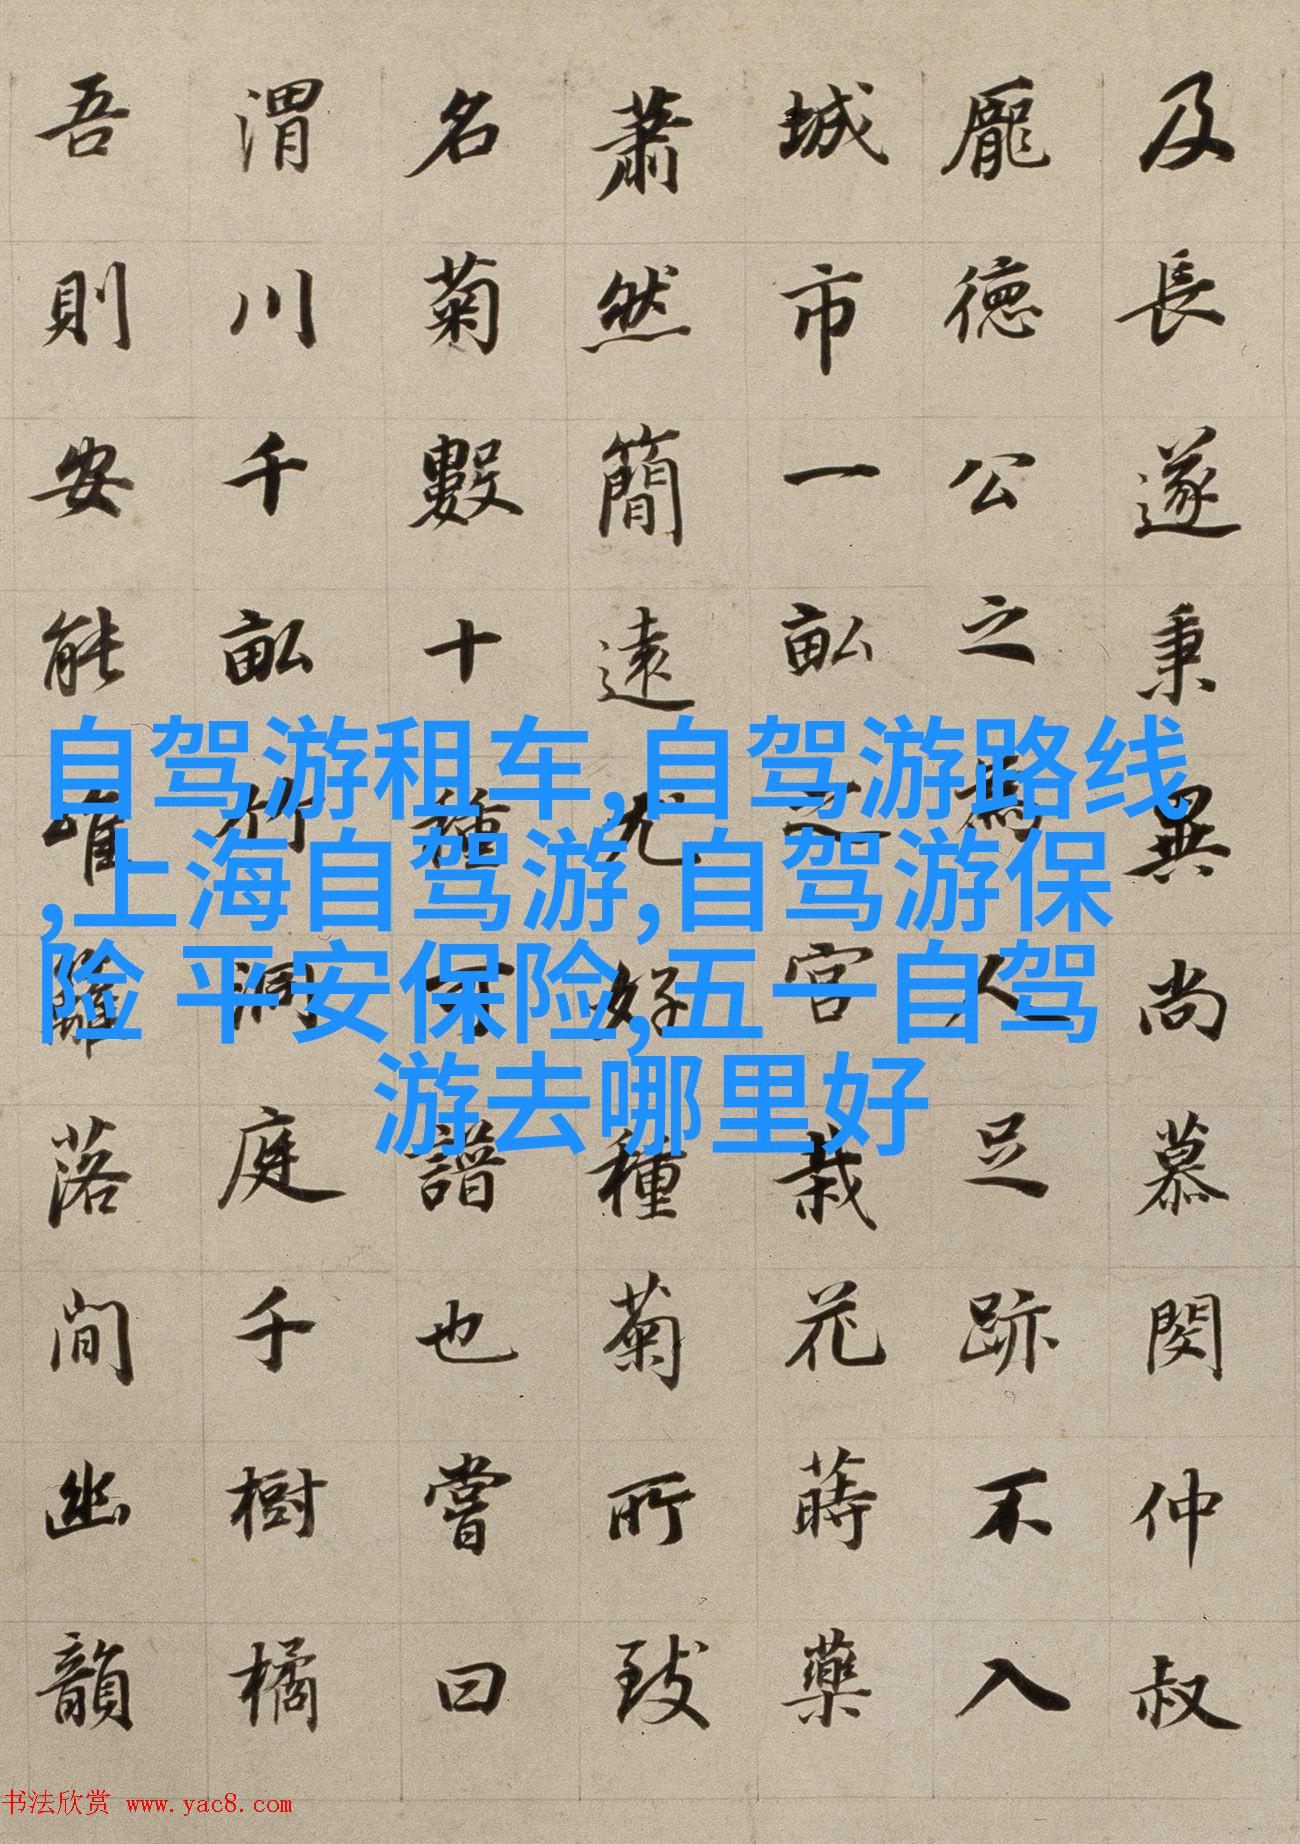 及長遂秉異尚慕閔仲叔
龐徳公之為人足跡不入
城市一畝之宮栽花蒔藥
蕭然簡遠尤好種菊所致
名菊數十種譜也嘗曰
渭川千畝竹洞庭千樹橘
吾則安能唯籬落間幽韻
自驾游租车,自驾游路线
,上海自驾游,自驾游保
险 平安保险,五一自驾
游去哪里好
书法欣赏 www.yac8.com